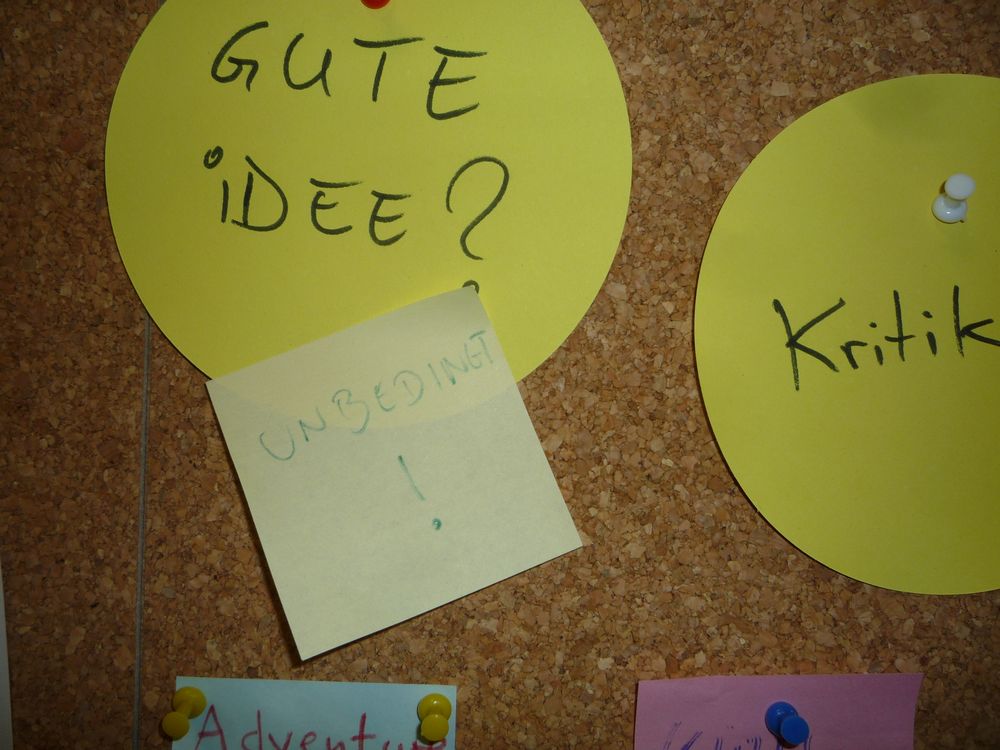 GUTE
iDEE?
UNBEDINGT
!
Kritik
Adventure